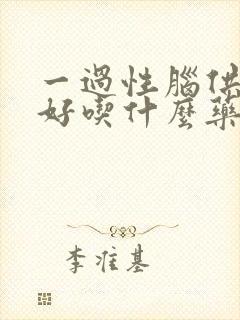 一過性腦供
好喫什麼藥
李準基